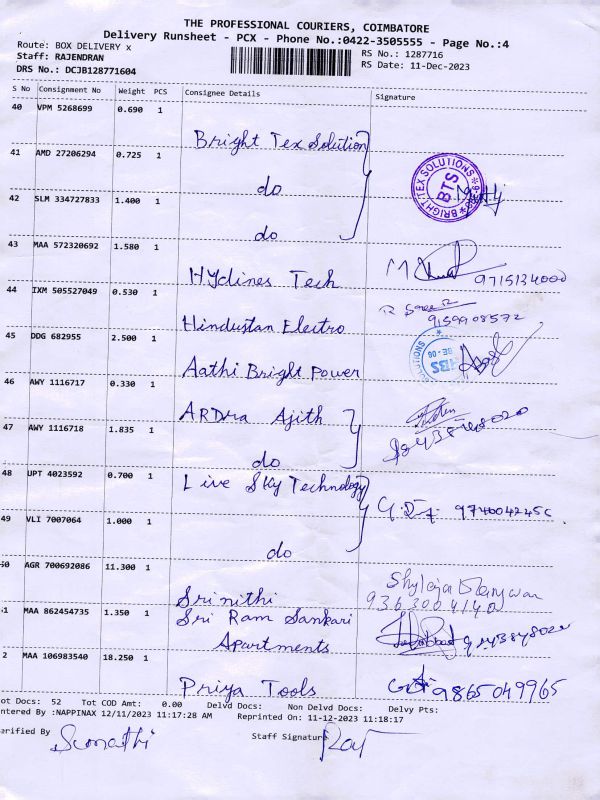 THE PROFESSIONAL COURIERS, COIMBATORE
Delivery Runsheet - PCX - Phone No.:0422-3505555 - Page No.:4
Route: BOX DELIVERY x
RS No.: 1287716
Staff: RAJENDRAN
RS Date: 11-Dec-2023
DRS No.: DCJB128771604
S No Consignment No Weight PCS Consignee Details Signature
40 VPM 5268699 0.690 1
Bright Tex Solution
41 AMD 27206294 0.725 1
do
BRIGHT TEX SOLUTIONS
BTS
42 SLM 334727833 1.400 1
do
43 MAA 572320692 1.580 1
Hydines Tech
9715134000
44 IXM 505527049 0.530 1
Hindustan Electro
9159908572
45 DDG 682955 2.500 1
Aathi Bright Power
46 AWY 1116717 0.330 1
ARDra Ajith
47 AWY 1116718 1.835 1
do
48 UPT 4023592 0.700 1
Live Sky Technology
49 VLI 7007064 1.000 1
do
50 AGR 700692086 11.300 1
Srinithi
9363004140
1 MAA 862454735 1.350 1
Sri Ram Sankari
Apartments
2 MAA 106983540 18.250 1
Priya Tools
9865049965
ot Docs: 52 Tot COD Amt: 0.00 Delvd Docs: Non Delvd Docs: Delvy Pts:
ntered By :NAPPINAX 12/11/2023 11:17:28 AM Reprinted On: 11-12-2023 11:18:17
erified By Sumathi
Staff Signature Raj